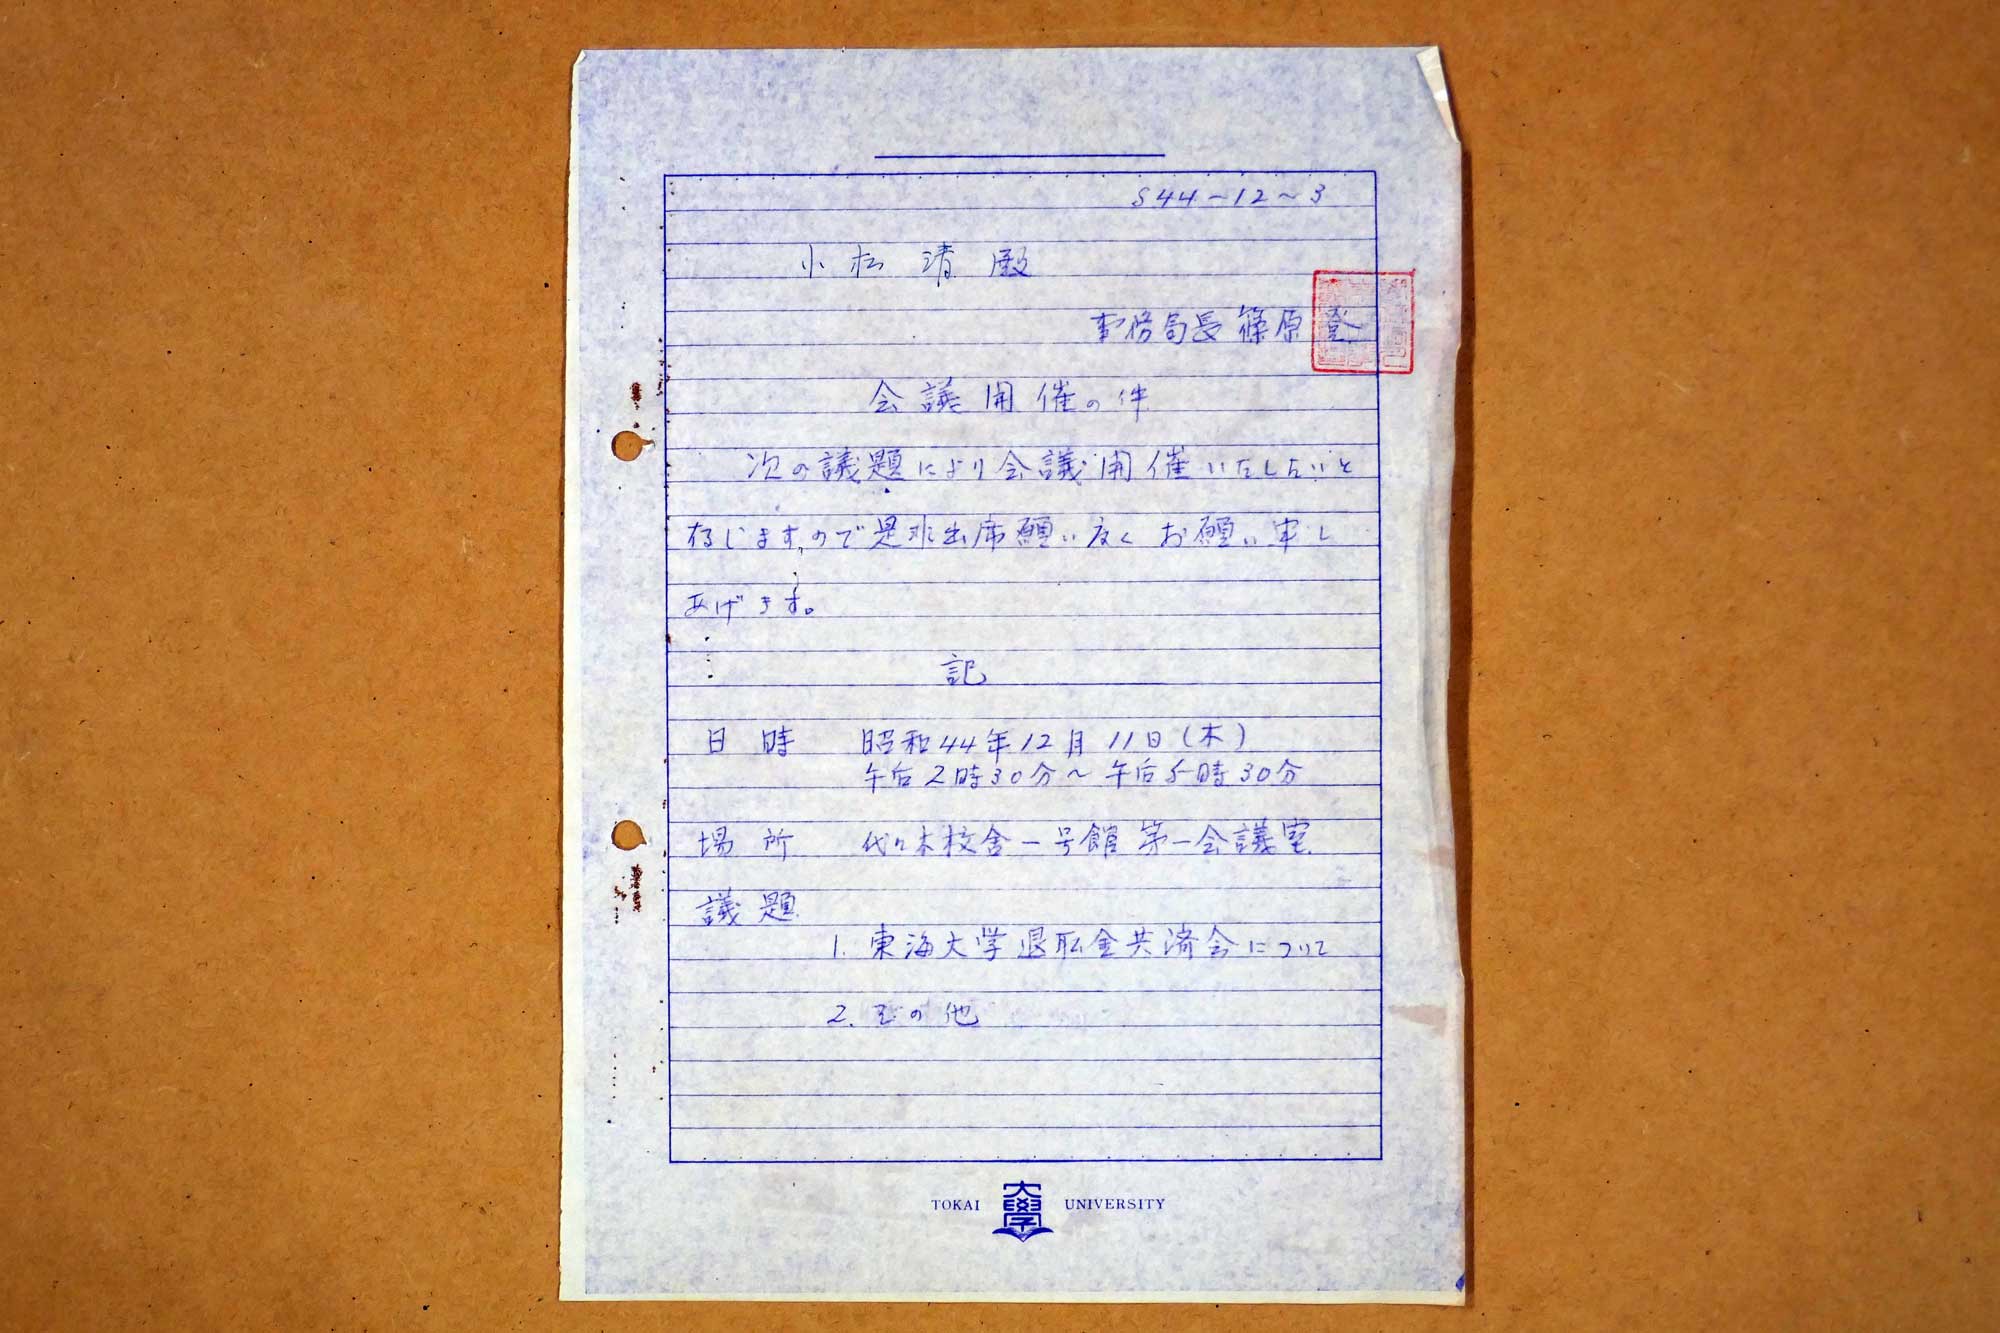 S44-12-3
小松清殿
事務局長 篠原 登
会議開催の件
次の議題により会議開催いたしたいと
存じますので是非出席願い度くお願い申し
あげます。
記
日時 昭和44年12月11日(木)
午后2時30分~午后5時30分
場所 代々木校舎一号館 第一会議室
議題
1. 東海大学退职金共済会について
2. その他
TOKAI 大學 UNIVERSITY